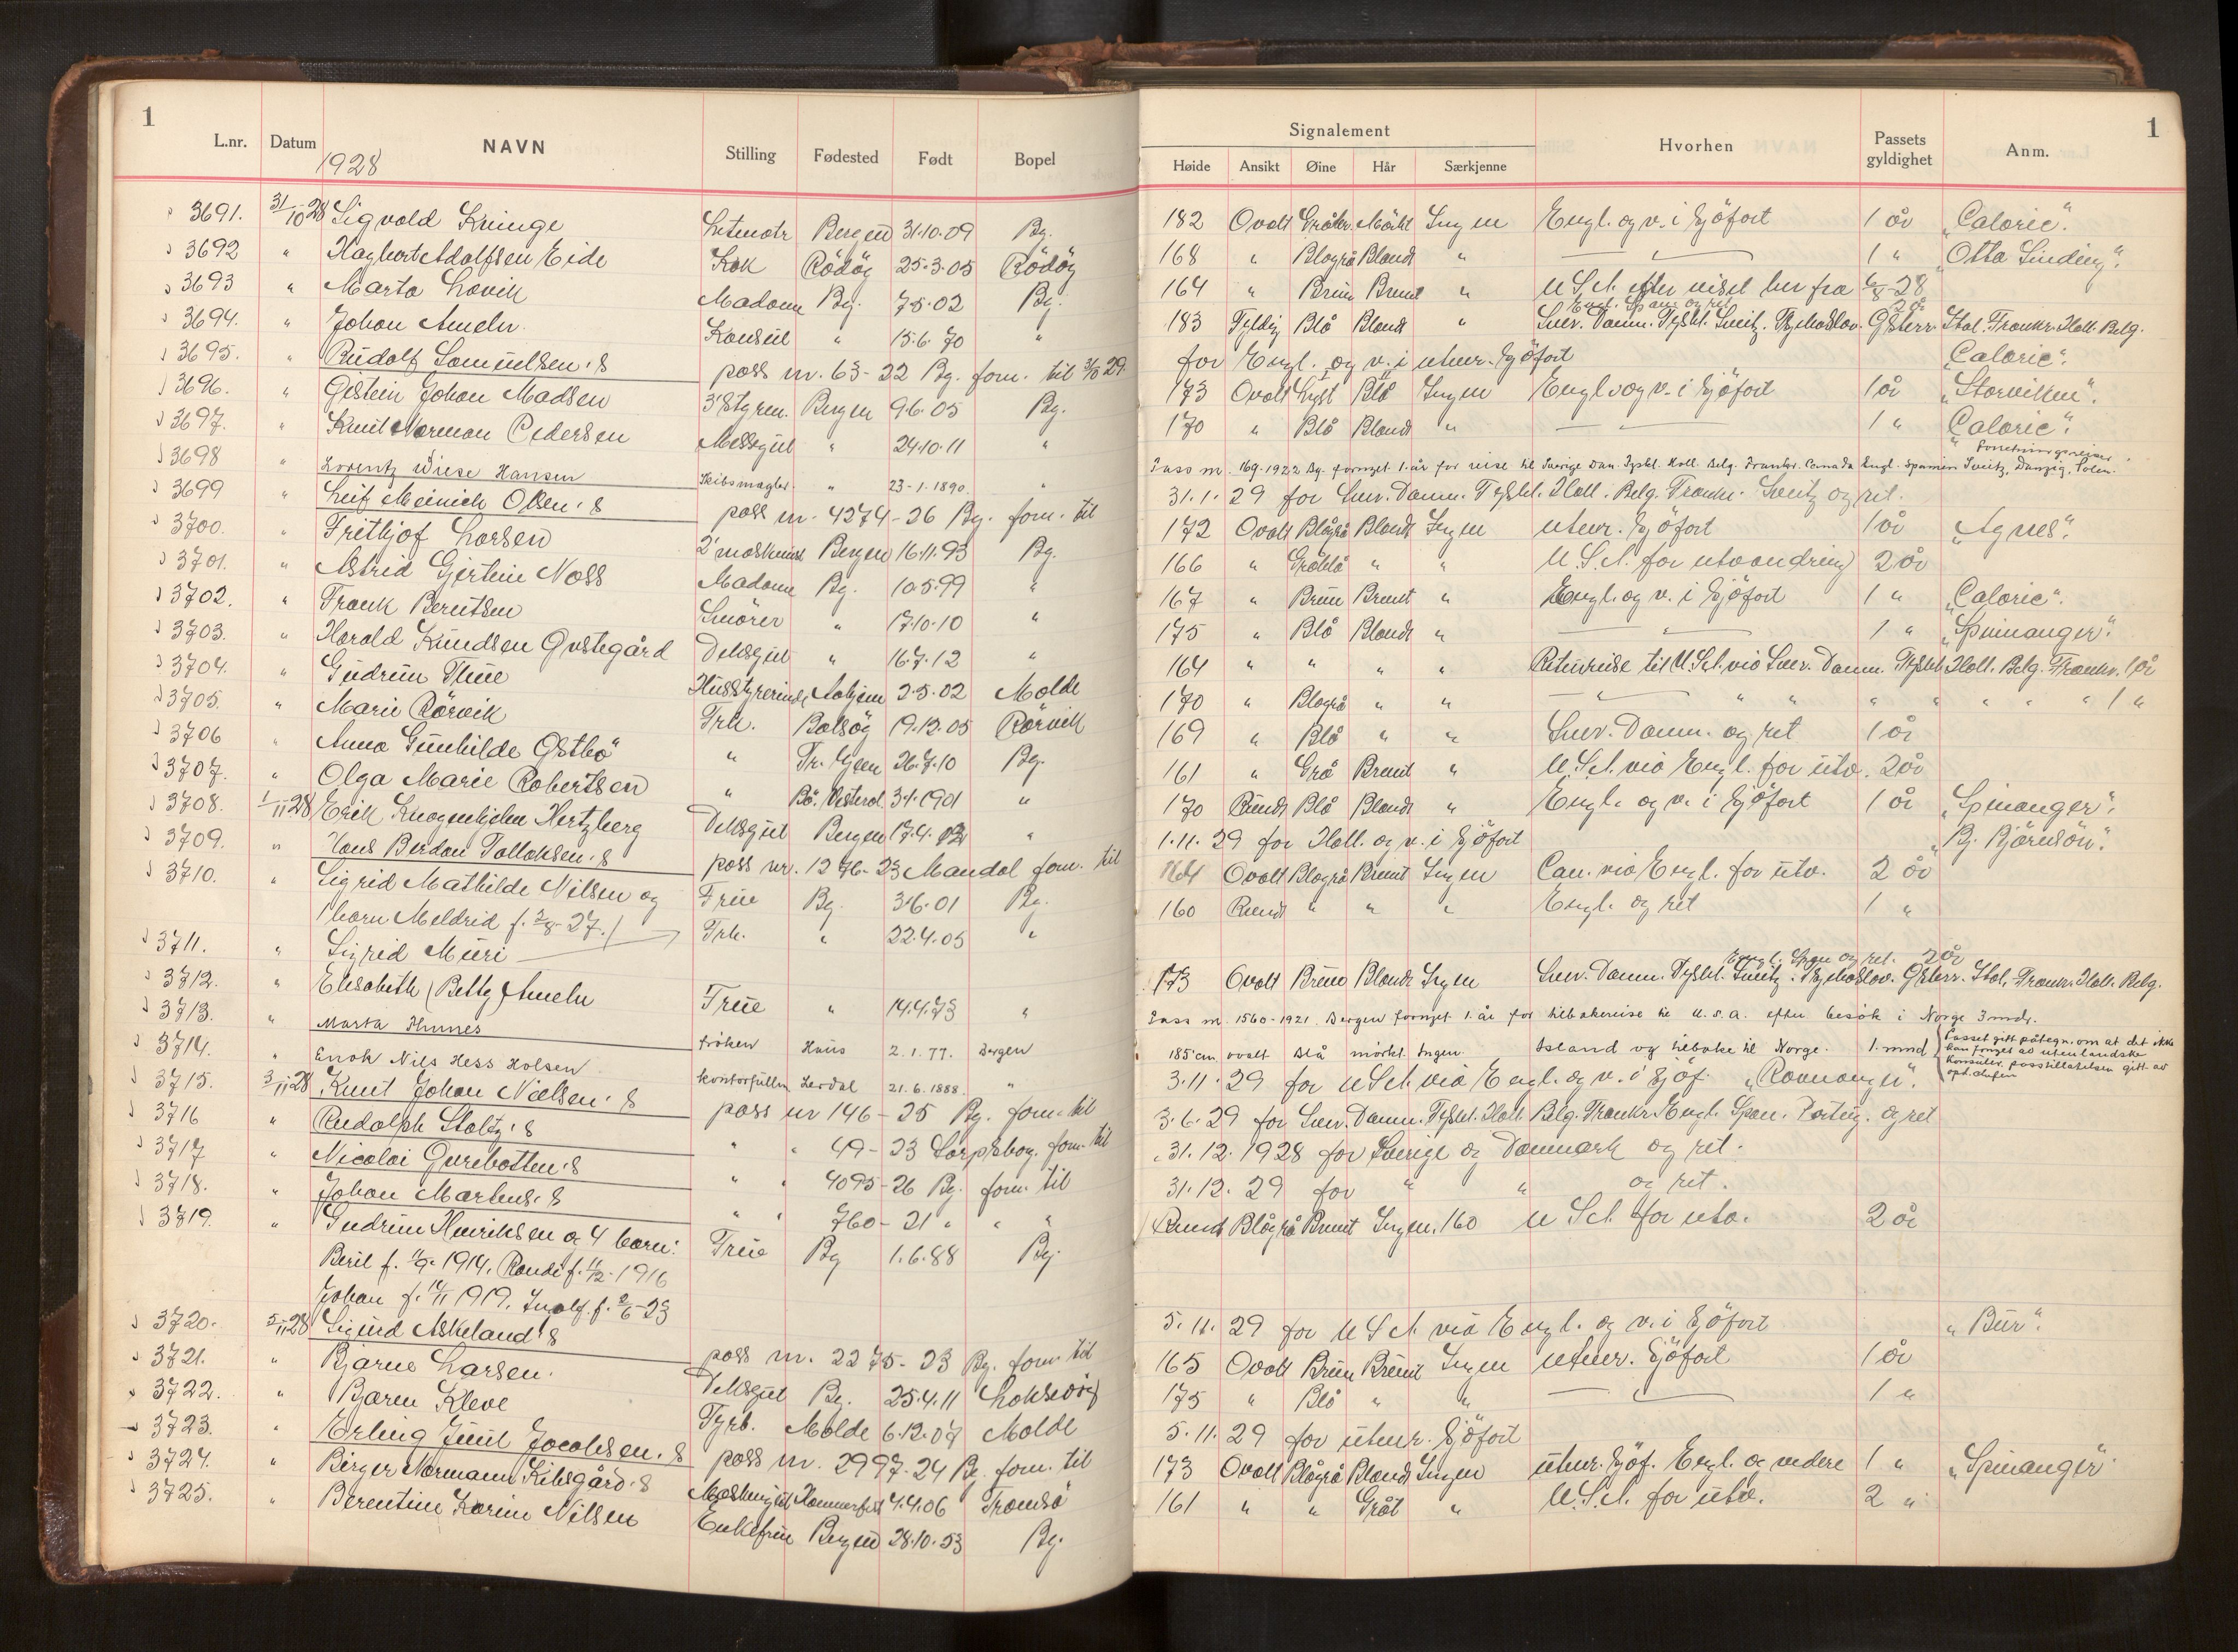 1
L.nr. Datum NAVN Stilling Fødested Født Bopel
1928
3691. 31/10 28 Sigvald Kringe Letmatr Bergen 31.10.09 Bg.
3692 " Hagbart Adolfsen Eide Kok Rödöy 25.3.05 Rödöy
3693 " Marta Lövik Madame Bg. 7.5.02 Bg.
3694. " Johan Ameln. Konsul " 15.6.70 "
3695. " Rudolf Samuelsen's pass nr. 63-22 Bg. forn. til 29.
3696. " Øistein Johan Madsen 3' Styrm. Bergen 9.6.05 Bg.
3697. " Knut Norman Pedersen Messegut " 24.10.11 "
3698 " Lorentz Wiese Hansen Skibsmægler. " 23-1.1890. "
3699 " Leif Meinich Olsen's pass nr. 4274-26 Bg. forn. til
3700. " Frithjof Larsen 2' maskinist Bergen 16.11.93 Bg.
3701. " Astrid Gjertine Noss Madame Bg. 10.5.99 "
3702. " Frank Berntsen Smörer " 17.10.10 "
3703. " Harald Knudsen Øvstegård Deksgut " 16.7.12 "
3704. " Gudrun Thue Husstyrerinde 2.5.02 Molde
3705. " Marie Rörvik Frk. Bolsöy 19.12.05 Rörvik
3706 " Anna Gunhilde Østbö " Tr. hjem 26.7.10 Bg.
3707. " Olga Marie Robertsen " Bö. Vesterål. 3.1.1901 "
3708. 1/11 28 Erik Knagenhjelm Hertzberg Deksgut Bergen 17.4. "
3709. " Hans Berdon Tallaksen's pass nr. 1276-23 Mandal forn. til
3710. " Sigrid Mathilde Nilsen og Frue Bg. 3.6.01 Bg.
1 barn Meldrid f. 2/8-27.)
3711. " Sigrid Muri Frk. " 22.4.05 "
3712. " Elisabeth (Betty) Ameln Frue " 14.4.73 "
3713. " Marta Hunnes fröken Haus 2.1.77. Bergen
3714. " Enok Nils Hess Holsen kontorfullm Lerdal 21.6.1888. "
3715. 3/11 28 Knut Johan Nielsen's pass nr 146-25 Bg. forn. til
3716 " Rudolph Stoltz's " " 49-23 Sarpsborg. forn. til
3717 " Nicolai Gurebotten's " " 4095-26 Bg. forn. til
3718. " Johan Martens's " " 760-21 " " "
3719. " Gudrun Henriksen og 4 barn: Frue Bg 1.6.88 Bg.
Beril f. 9. 1914. Randi f. 12-1916
Johan f. 11 1919. Ingolf. f. 2/6-23
3720. 5/11 28 Sigurd Askeland's pass nr. 2275-23 Bg. forn. til
3721. " Bjarne Larsen. Deksgut Bg. 25.4.11 Laksevåg
3722. " Bjarne Kleve Fyrb. Molde 6.12.07 Molde
3723. " Erling Juul Jacobsen's pass nr. 2997-24 Bg. forn. til
3724. " Birger Normann Kilsgård's Hammerfest 4.4.06 Tromsö
3725. " Berentine Karine Nilsen Enkefrue Bergen 28.10.53 Bg.
1
Signalement
Høide Ansikt Øine Hår Særkjenne Hvorhen Passets gyldighet Anm.
182 Ovalt Gråbr. Mörkt Ingen Engl. og v. i Sjöfart 1 år „Caloric".
168 " Blågrå Blondt " 1 " „Otto Sinding".
164 " Brun Brunt " U.S.A. efter visit her fra 6/8-28
Engl. Span. og ret 2 år
183 Fyldig Blå Blondt " Sver. Danm. Tyskl. Sveitz. Tjekoslov. Østerr. Ital. Frankr. Holl. Belg.
for Engl. og v. i utenr. Sjöfart „Caloric".
173 Ovalt Lyst Blå Ingen Engl. og v. i Sjöfart 1 år „Storviken".
170 " Blå Blondt " 1 " „Caloric".
Forretningsreiser.
Pass nr. 169-1922 Bg. fornyet 1 år for reise til Sverige Dan. Tyskl. Holl. Belg. Frankr. Canada Engl. Spanien Sveitz, Danzig, Polen.
31.1.29 for Sver. Danm. Tyskl. Holl. Belg. Frankr. Sveitz og ret.
172 Ovalt Blågrå Blondt Ingen utenr. Sjöfart 1 år „Agnes".
166 " Gråblå " " U.S.A. for utvandring 2 år
167 " Brun Brunt " Engl. og v. i Sjöfart 1 " „Caloric".
175 " Blå Blondt " 1 " „Spinanger".
164 " " " " Returreise til U.S.A. via Sver. Danm. Tyskl. Holl. Belg. Frankr. 1 år
170 " Blågrå " " " " " " " " " " 1 "
169 " Blå " " Sver. Danm. og ret 1 år
161 " Grå Brunt " U.S.A. via Engl. for utv. 2 år
170 Rundt Blå Blondt " Engl. og v. i Sjöfart 1 år „Spinanger".
1.11.29 for Holl. og v. i Sjöfart „Bj. Björnson".
164 Ovalt Blågrå Brunt Ingen Can. via Engl. for utv. 2 år
160 Rundt " " " Engl. og ret 1 "
Engl. Span og ret. 2 år
173 Ovalt Brun Blondt Ingen Sver. Danm. Tyskl. Sveitz. Tjekoslov. Østerr. Ital. Frankr. Holl. Belg.
Pass nr. 1560-1921. Bergen fornyet 1 år for tilbakereise til U.S.A. efter besök i Norge 3 mdr.
185 cm ovalt Blå mörkt Ingen. Island og tilbake til Norge. 1. mnd
Passet gitt påtegn. om at det ikke
kan fornyet ad utenlandske
Konsuler. passtillatelsen gitt av
3.11.29 for U.S.A. via Engl. og v. i Sjöf. „Ravnanger".
3.6.29 for Sver. Danm. Tyskl. Holl. Belg. Frankr. Engl. Span. Portug. og ret
31.12.1928 for Sverige og Danmark og ret.
31.12.29 for " " og ret.
Rundt Blågrå Brunt Ingen. 160 U.S.A. for utv. 2 år
5.11.29 for U.S.A. via Engl. og v. i Sjöfart „Bur".
165 Ovalt Brun Brunt Ingen utenr. Sjöfart 1 år
175 " Blå " " 1 "
5.11.29 for utenr. Sjöfart
173 Ovalt Blågrå Blondt Ingen utenr. Sjöf. Engl. og videre 1 " „Spinanger"
161 " " Grått " U.S.A. for utv. 2 "